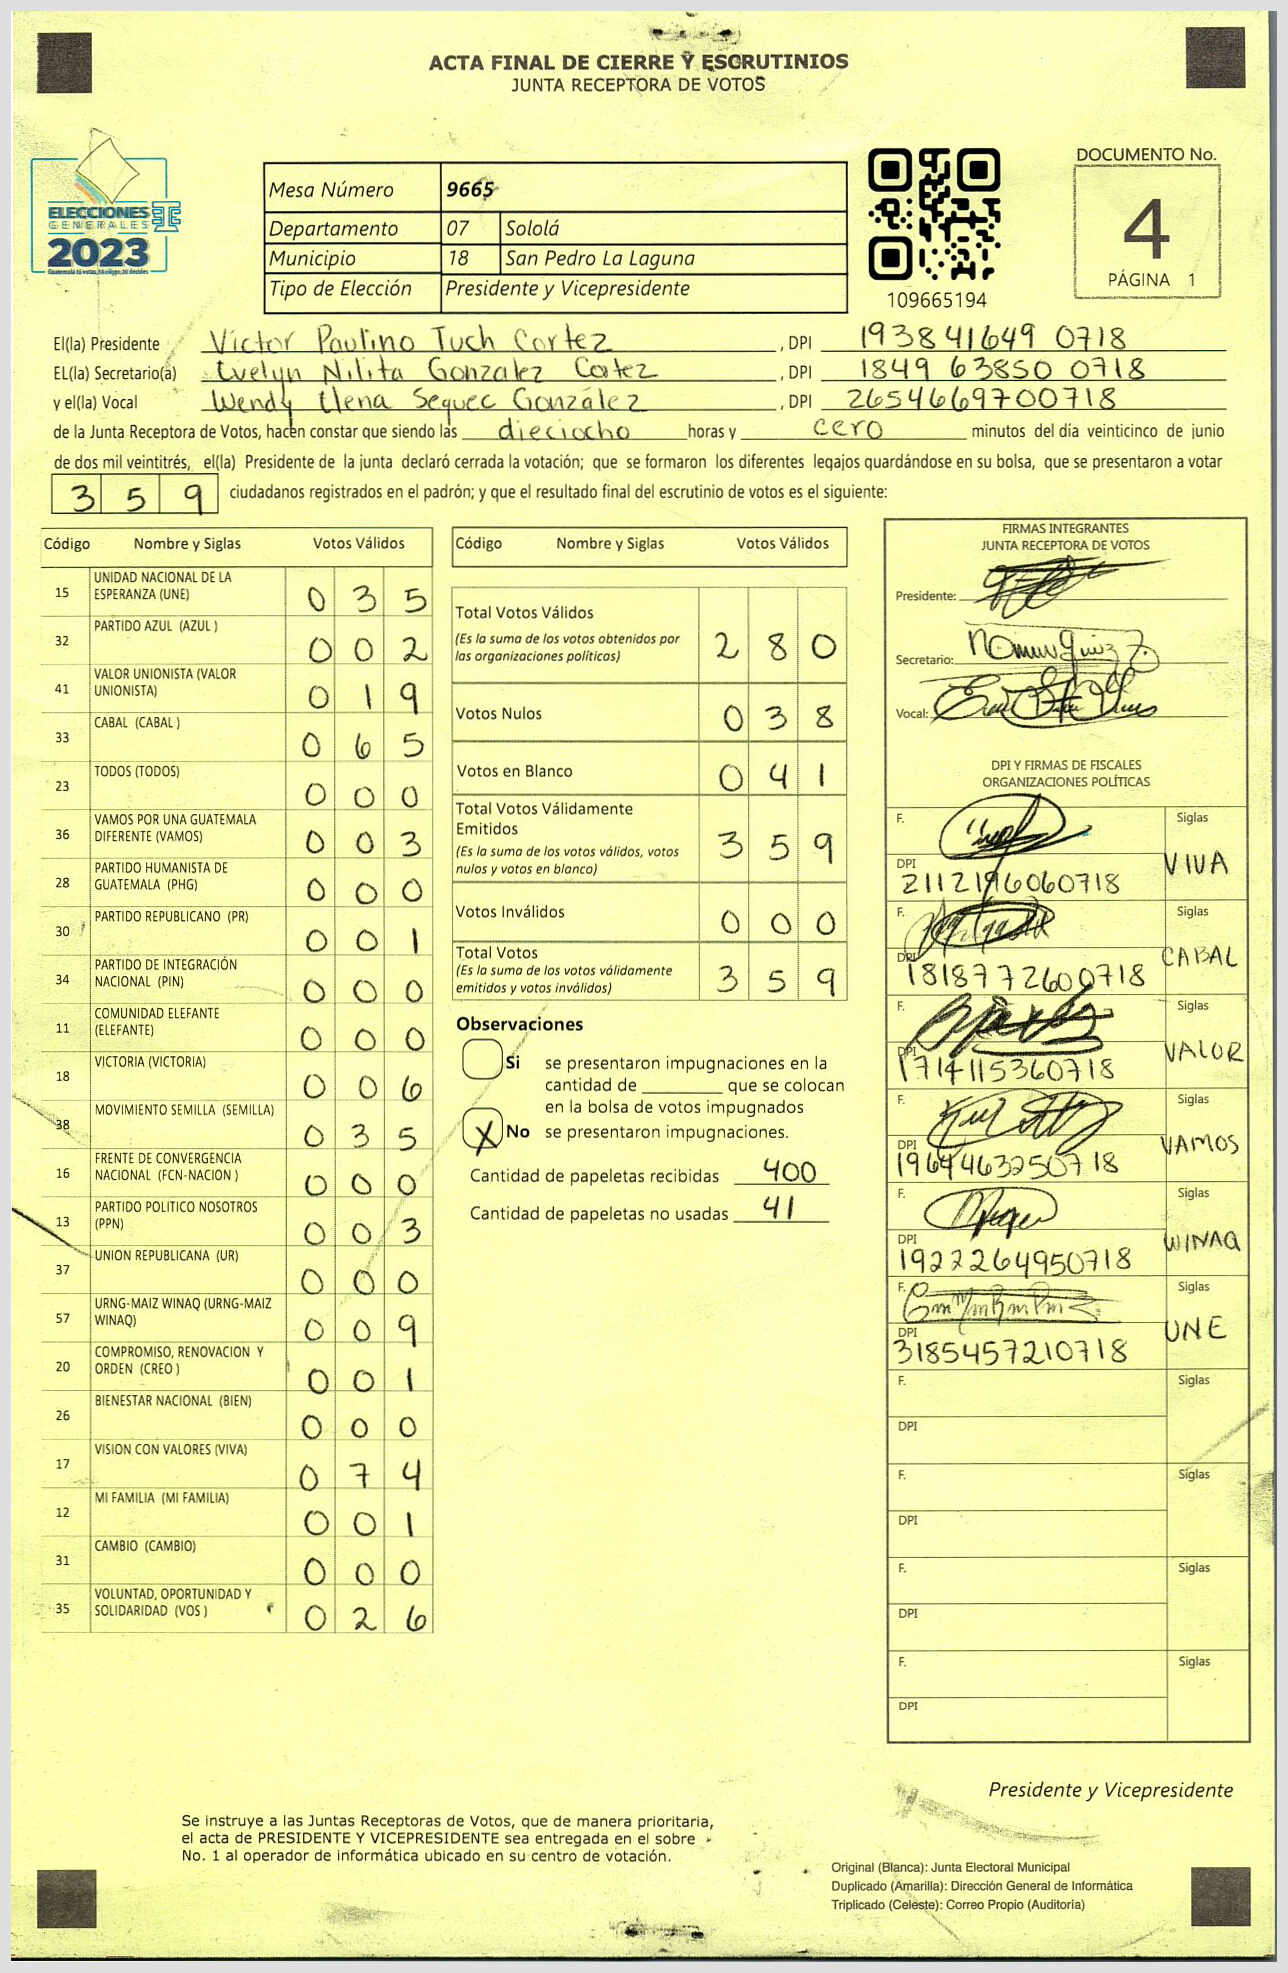 ACTA FINAL DE CIERRE Y ESCRUTINIOS
JUNTA RECEPTORA DE VOTOS
ELECCIONES
GENERALES
2023
Mesa Número 9665
Departamento 07 Sololá
Municipio 18 San Pedro La Laguna
Tipo de Elección Presidente y Vicepresidente
109665194
DOCUMENTO No.
4
PÁGINA 1
El(la) Presidente Víctor Paulino Tuch Cortez, DPI 193841649 0718
EL(la) Secretario(a) Evelyn Nilita Gonzalez Cortez, DPI 1849 63850 0718
y el(la) Vocal Wendy Elena Sequec González, DPI 2654669700718
de la Junta Receptora de Votos, hacen constar que siendo las dieciocho horas y cero minutos del día veinticinco de junio
de dos mil veintitrés, el(la) Presidente de la junta declaró cerrada la votación; que se formaron los diferentes legajos guardándose en su bolsa, que se presentaron a votar
3 5 9 ciudadanos registrados en el padrón; y que el resultado final del escrutinio de votos es el siguiente:
Código Nombre y Siglas Votos Válidos
15 UNIDAD NACIONAL DE LA ESPERANZA (UNE) 0 3 5
32 PARTIDO AZUL (AZUL ) 0 0 2
41 VALOR UNIONISTA (VALOR UNIONISTA) 0 1 9
33 CABAL (CABAL ) 0 6 5
23 TODOS (TODOS) 0 0 0
36 VAMOS POR UNA GUATEMALA DIFERENTE (VAMOS) 0 0 3
28 PARTIDO HUMANISTA DE GUATEMALA (PHG) 0 0 0
30 PARTIDO REPUBLICANO (PR) 0 0 1
34 PARTIDO DE INTEGRACIÓN NACIONAL (PIN) 0 0 0
11 COMUNIDAD ELEFANTE (ELEFANTE) 0 0 0
18 VICTORIA (VICTORIA) 0 0 6
38 MOVIMIENTO SEMILLA (SEMILLA) 0 3 5
16 FRENTE DE CONVERGENCIA NACIONAL (FCN-NACION ) 0 0 0
13 PARTIDO POLITICO NOSOTROS (PPN) 0 0 3
37 UNION REPUBLICANA (UR) 0 0 0
57 URNG-MAIZ WINAQ (URNG-MAIZ WINAQ) 0 0 9
20 COMPROMISO, RENOVACION Y ORDEN (CREO ) 0 0 1
26 BIENESTAR NACIONAL (BIEN) 0 0 0
17 VISION CON VALORES (VIVA) 0 7 4
12 MI FAMILIA (MI FAMILIA) 0 0 1
31 CAMBIO (CAMBIO) 0 0 0
35 VOLUNTAD, OPORTUNIDAD Y SOLIDARIDAD (VOS ) 0 2 6
Código Nombre y Siglas Votos Válidos
Total Votos Válidos 2 8 0
(Es la suma de los votos obtenidos por
las organizaciones políticas)
Votos Nulos 0 3 8
Votos en Blanco 0 4 1
Total Votos Válidamente
Emitidos 3 5 9
(Es la suma de los votos válidos, votos
nulos y votos en blanco)
Votos Inválidos 0 0 0
Total Votos 3 5 9
(Es la suma de los votos válidamente
emitidos y votos inválidos)
Observaciones
Si se presentaron impugnaciones en la
cantidad de ________ que se colocan
en la bolsa de votos impugnados
X No se presentaron impugnaciones.
Cantidad de papeletas recibidas 400
Cantidad de papeletas no usadas 41
FIRMAS INTEGRANTES
JUNTA RECEPTORA DE VOTOS
Presidente:
Secretario:
Vocal:
DPI Y FIRMAS DE FISCALES
ORGANIZACIONES POLÍTICAS
F. Siglas
DPI 2112196060718 VIVA
F. Siglas
DPI 1818772600718 CABAL
F. Siglas
DPI 1714115360718 VALOR
F. Siglas
DPI 1964463250718 VAMOS
F. Siglas
DPI 1922264950718 WINAQ
F. Siglas
DPI 3185457210718 UNE
F. Siglas
DPI
F. Siglas
DPI
F. Siglas
DPI
F. Siglas
DPI
Presidente y Vicepresidente
Se instruye a las Juntas Receptoras de Votos, que de manera prioritaria,
el acta de PRESIDENTE Y VICEPRESIDENTE sea entregada en el sobre
No. 1 al operador de informática ubicado en su centro de votación.
Original (Blanca): Junta Electoral Municipal
Duplicado (Amarilla): Dirección General de Informática
Triplicado (Celeste): Correo Propio (Auditoria)